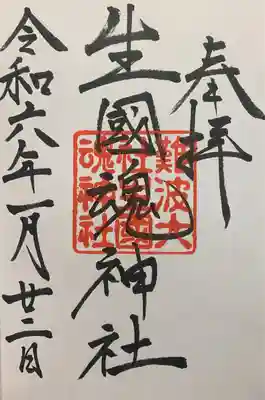 奉拝
生國魂神社
令和六年一月廿二日
難波大
社生國
魂神社